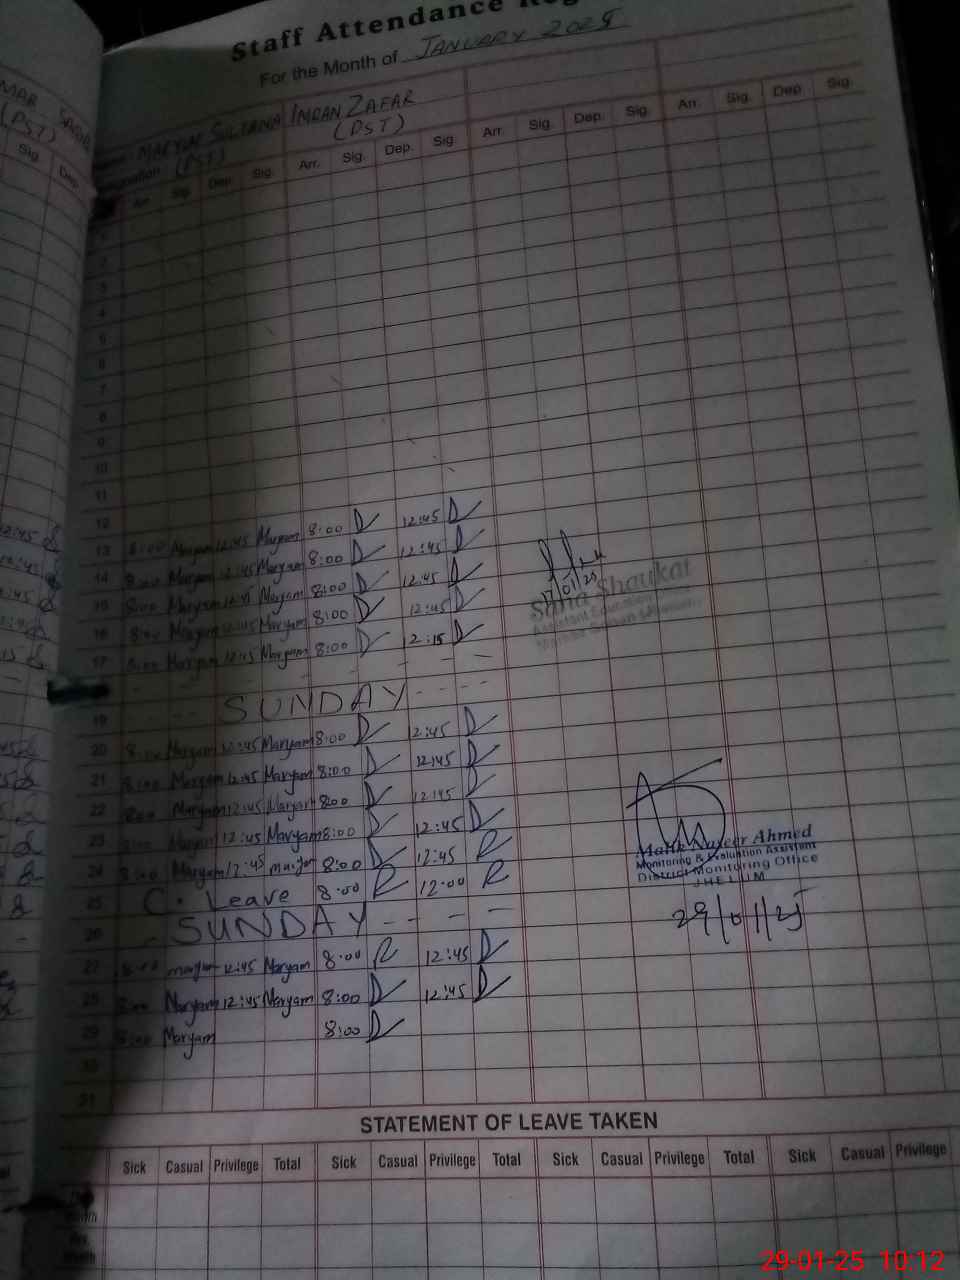 Staff Attendance Reg
For the Month of JANUARY 2025
MARYAM SULTANA IMRAN ZAFAR
(PST) (PST)
Arr. Sig. Dep. Sig. Arr. Sig. Dep. Sig. Arr. Sig. Dep. Sig. Arr. Sig. Dep. Sig.
1
2
3
4
5
6
7
8
9
10
11
12
13 8:00 Maryam 12:45 Maryam 8:00 12:45
14 8:00 Maryam 12:45 Maryam 8:00 12:45
15 8:00 Maryam 12:45 Maryam 8:00 12:45
16 8:00 Maryam 12:45 Maryam 8:00 12:45
17 8:00 Maryam 12:45 Maryam 8:00 12:15
17/01/25
Sana Shaukat
Assistant Education
SUNDAY
19
20 8:00 Maryam 12:45 Maryam 8:00 12:45
21 8:00 Maryam 12:45 Maryam 8:00 12:45
22 8:00 Maryam 12:45 Maryam 8:00 12:45
23 8:00 Maryam 12:45 Maryam 8:00 12:45
24 8:00 Maryam 12:45 Maryam 8:00 12:45
25 C. Leave 8:00 12:00
26 SUNDAY
Malik Naseer Ahmed
Monitoring & Evaluation Assistant
District Monitoring Office
JHELUM
29/01/25
27 8:00 Maryam 12:45 Maryam 8:00 12:45
28 8:00 Maryam 12:45 Maryam 8:00 12:45
29 8:00 Maryam 8:00
30
31
STATEMENT OF LEAVE TAKEN
Sick Casual Privilege Total Sick Casual Privilege Total Sick Casual Privilege Total Sick Casual Privilege
29-01-25 10:12